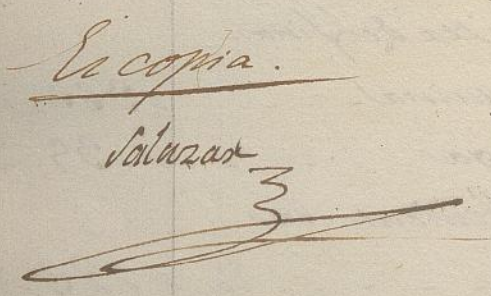 Es copia.
Salazar